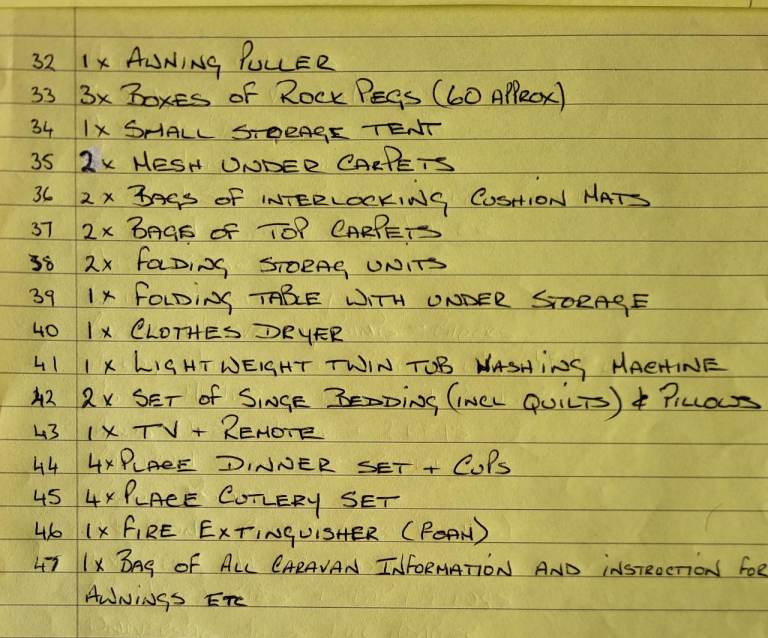 32 1x AWNING PULLER
33 3x BOXES OF ROCK PEGS (60 APPROX)
34 1x SMALL STORAGE TENT
35 2x MESH UNDER CARPETS
36 2x BAGS OF INTERLOCKING CUSHION MATS
37 2x BAGS OF TOP CARPETS
38 2x FOLDING STORAG UNITS
39 1x FOLDING TABLE WITH UNDER STORAGE
40 1x CLOTHES DRYER
41 1x LIGHTWEIGHT TWIN TUB WASHING MACHINE
42 2x SET OF SINGE BEDDING (INCL QUILTS) & PILLOWS
43 1x TV + REMOTE
44 4x PLACE DINNER SET + CUPS
45 4x PLACE CUTLERY SET
46 1x FIRE EXTINGUISHER (FOAM)
47 1x BAG OF ALL CARAVAN INFORMATION AND INSTRUCTION FOR
AWNINGS ETC